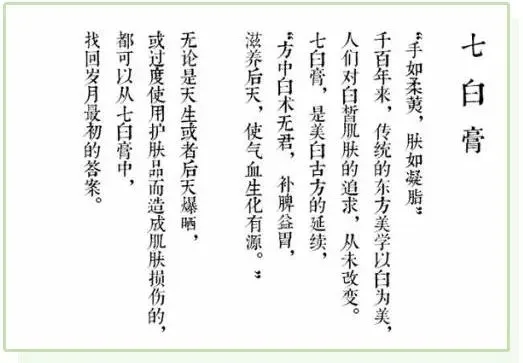 七白膏
“手如柔荑，肤如凝脂”
千百年来，传统的东方美学以白为美，
人们对白皙肌肤的追求，从未改变。
七白膏，是美白古方的延续，
“方中白术无君，补脾益胃，
滋养后天，使气血生化有源。”
无论是天生或者后天爆晒，
或过度使用护肤品而造成肌肤损伤的，
都可以从七白膏中，
找回岁月最初的答案。